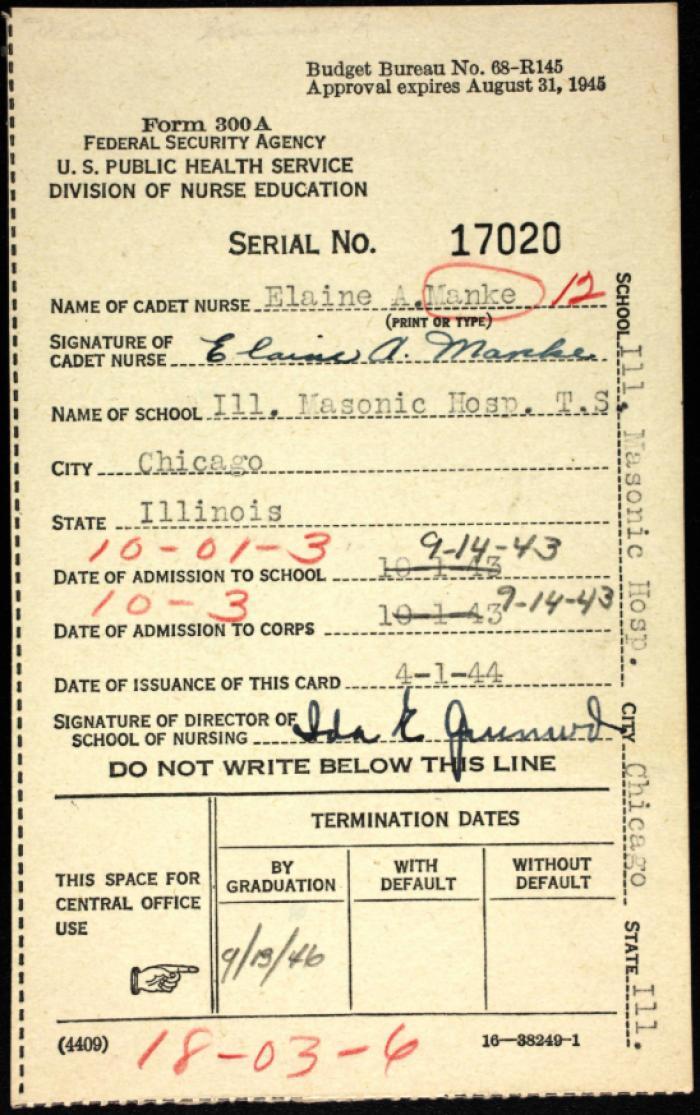 Budget Bureau No. 68-R145
Approval expires August 31, 1945
Form 300A
FEDERAL SECURITY AGENCY
U. S. PUBLIC HEALTH SERVICE
DIVISION OF NURSE EDUCATION
SERIAL NO. 17020
NAME OF CADET NURSE Elaine A. Manke 12
(PRINT OR TYPE)
SIGNATURE OF
CADET NURSE Elaine A. Manke
NAME OF SCHOOL Ill. Masonic Hosp. T.S.
CITY Chicago
STATE Illinois
10-01-3 9-14-43
DATE OF ADMISSION TO SCHOOL 10-1-43
10-3 9-14-43
DATE OF ADMISSION TO CORPS 10-1-43
DATE OF ISSUANCE OF THIS CARD 4-1-44
SIGNATURE OF DIRECTOR OF
SCHOOL OF NURSING Ida E
DO NOT WRITE BELOW THIS LINE
TERMINATION DATES
THIS SPACE FOR
CENTRAL OFFICE
USE
BY
GRADUATION
WITH
DEFAULT
WITHOUT
DEFAULT
9/13/46
(4409)
18-03-6
16—38249-1
SCHOOL Ill. Masonic Hosp. CITY Chicago STATE Ill.